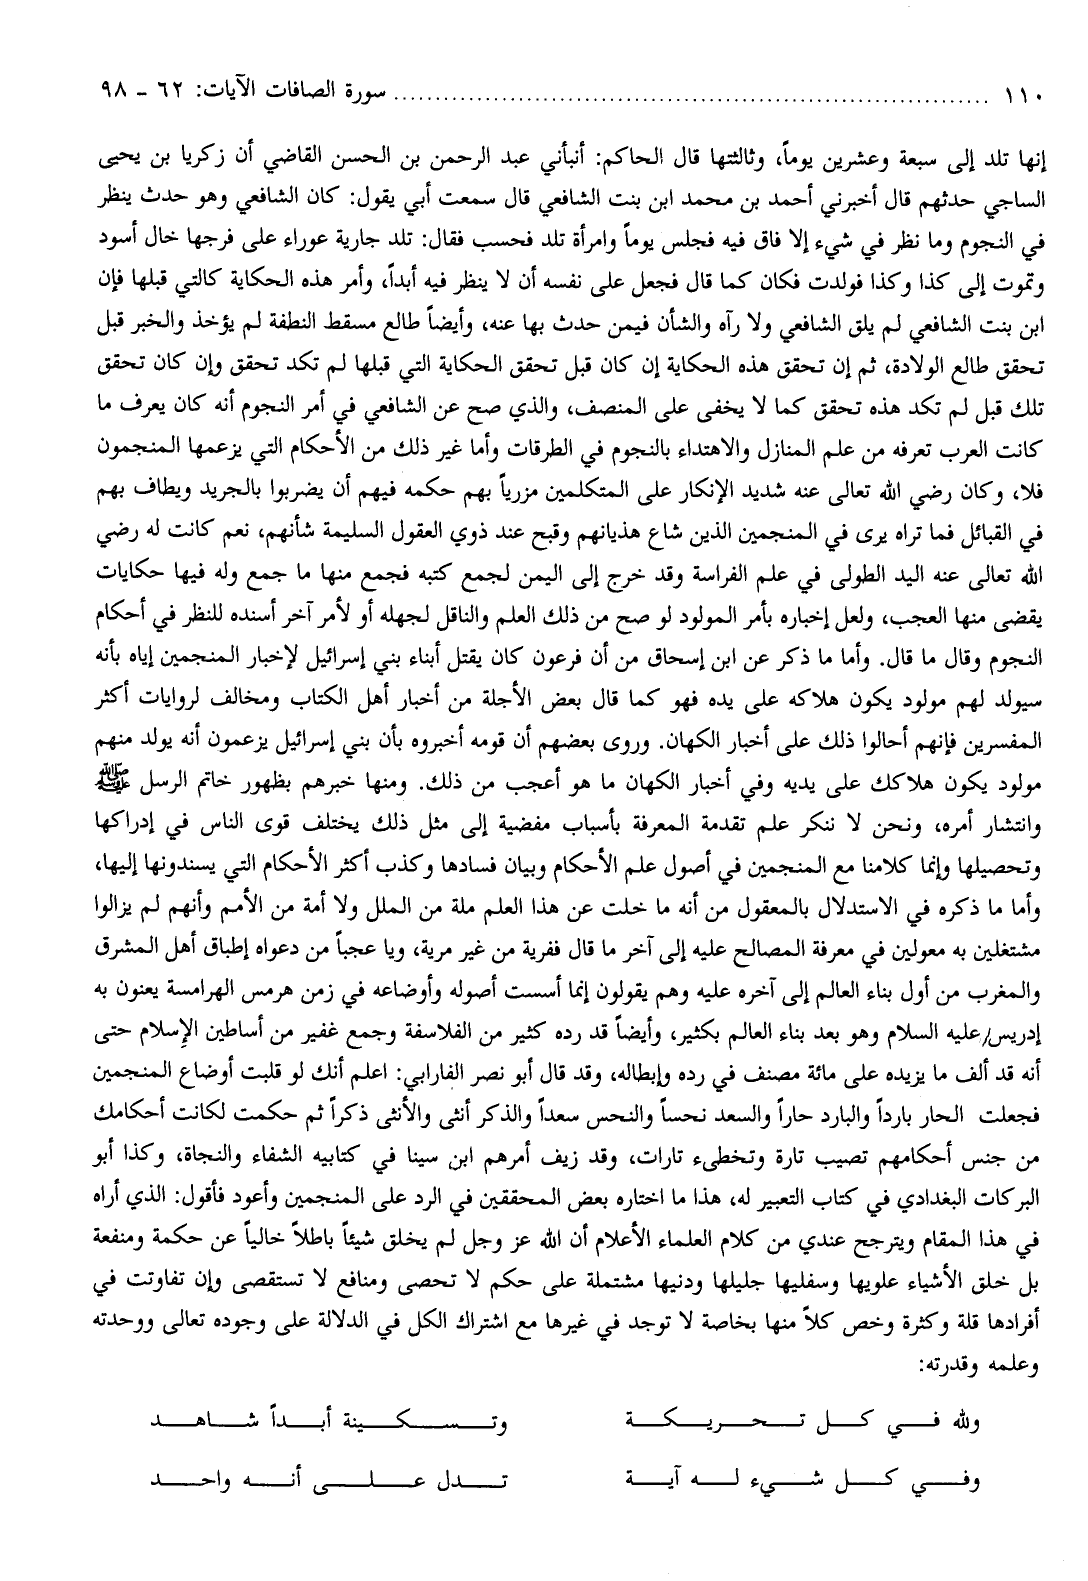 ١١٠ ........................................................................ سورة الصافات الآيات: ٦٢ - ٩٨
إنها تلد إلى سبعة وعشرين يوماً، وثالثتها قال الحاكم: أنبأني عبد الرحمن بن الحسن القاضي أن زكريا بن يحيى
الساجي حدثهم قال أخبرني أحمد بن محمد ابن بنت الشافعي قال سمعت أبي يقول: كان الشافعي وهو حدث ينظر
في النجوم وما نظر في شيء إلا فاق فيه فجلس يوماً وامرأة تلد فحسب فقال: تلد جارية عوراء على فرجها خال أسود
وتموت إلى كذا وكذا فولدت فكان كما قال فجعل على نفسه أن لا ينظر فيه أبداً، وأمر هذه الحكاية كالتي قبلها فإن
ابن بنت الشافعي لم يلق الشافعي ولا رآه والشأن فيمن حدث بها عنه، وأيضاً طالع مسقط النطفة لم يؤخذ والخبر قبل
تحقق طالع الولادة، ثم إن تحقق هذه الحكاية إن كان قبل تحقق الحكاية التي قبلها لم تكد تحقق وإن كان تحقق
تلك قبل لم تكد هذه تحقق كما لا يخفى على المنصف، والذي صح عن الشافعي في أمر النجوم أنه كان يعرف ما
كانت العرب تعرفه من علم المنازل والاهتداء بالنجوم في الطرقات وأما غير ذلك من الأحكام التي يزعمها المنجمون
فلا، وكان رضي الله تعالى عنه شديد الإنكار على المتكلمين مزرياً بهم حكمه فيهم أن يضربوا بالجريد ويطاف بهم
في القبائل فما تراه يرى في المنجمين الذين شاع هذيانهم وقبح عند ذوي العقول السليمة شأنهم، نعم كانت له رضي
الله تعالى عنه اليد الطولى في علم الفراسة وقد خرج إلى اليمن لجمع كتبه فجمع منها ما جمع وله فيها حكايات
يقضى منها العجب، ولعل إخباره بأمر المولود لو صح من ذلك العلم والناقل لجهله أو لأمر آخر أسنده للنظر في أحكام
النجوم وقال ما قال. وأما ما ذكر عن ابن إسحاق من أن فرعون كان يقتل أبناء بني إسرائيل لإخبار المنجمين إياه بأنه
سيولد لهم مولود يكون هلاكه على يده فهو كما قال بعض الأجلة من أخبار أهل الكتاب ومخالف لروايات أكثر
المفسرين فإنهم أحالوا ذلك على أخبار الكهان. وروى بعضهم أن قومه أخبروه بأن بني إسرائيل يزعمون أنه يولد منهم
مولود يكون هلاكك على يديه وفي أخبار الكهان ما هو أعجب من ذلك. ومنها خبرهم بظهور خاتم الرسل ﷺ
وانتشار أمره، ونحن لا ننكر علم تقدمة المعرفة بأسباب مفضية إلى مثل ذلك يختلف قوى الناس في إدراكها
وتحصيلها وإنما كلامنا مع المنجمين في أصول علم الأحكام وبيان فسادها وكذب أكثر الأحكام التي يسندونها إليها،
وأما ما ذكره في الاستدلال بالمعقول من أنه ما خلت عن هذا العلم ملة من الملل ولا أمة من الأمم وأنهم لم يزالوا
مشتغلين به معولين في معرفة المصالح عليه إلى آخر ما قال ففرية من غير مرية، ويا عجباً من دعواه إطباق أهل المشرق
والمغرب من أول بناء العالم إلى آخره عليه وهم يقولون إنما أسست أصوله وأوضاعه في زمن هرمس الهرامسة يعنون به
إدريس/عليه السلام وهو بعد بناء العالم بكثير، وأيضاً قد رده كثير من الفلاسفة وجمع غفير من أساطين الإسلام حتى
أنه قد ألف ما يزيده على مائة مصنف في رده وإبطاله، وقد قال أبو نصر الفارابي: اعلم أنك لو قلبت أوضاع المنجمين
فجعلت الحار بارداً والبارد حاراً والسعد نحساً والنحس سعداً والذكر أنثى والأنثى ذكراً ثم حكمت لكانت أحكامك
من جنس أحكامهم تصيب تارة وتخطىء تارات، وقد زيف أمرهم ابن سينا في كتابيه الشفاء والنجاة، وكذا أبو
البركات البغدادي في كتاب التعبير له، هذا ما اختاره بعض المحققين في الرد على المنجمين وأعود فأقول: الذي أراه
في هذا المقام ويترجح عندي من كلام العلماء الأعلام أن الله عز وجل لم يخلق شيئاً باطلاً خالياً عن حكمة ومنفعة
بل خلق الأشياء علويها وسفليها جليلها ودنيها مشتملة على حكم لا تحصى ومنافع لا تستقصى وإن تفاوتت في
أفرادها قلة وكثرة وخص كلاً منها بخاصة لا توجد في غيرها مع اشتراك الكل في الدلالة على وجوده تعالى ووحدته
وعلمه وقدرته:
ولله فـي كـل تـحـريـكـة وتـسـكـيـنة أبـداً شـاهـد
وفـي كـل شـيء لـه آيـة تـدل عـلـى أنـه واحـد